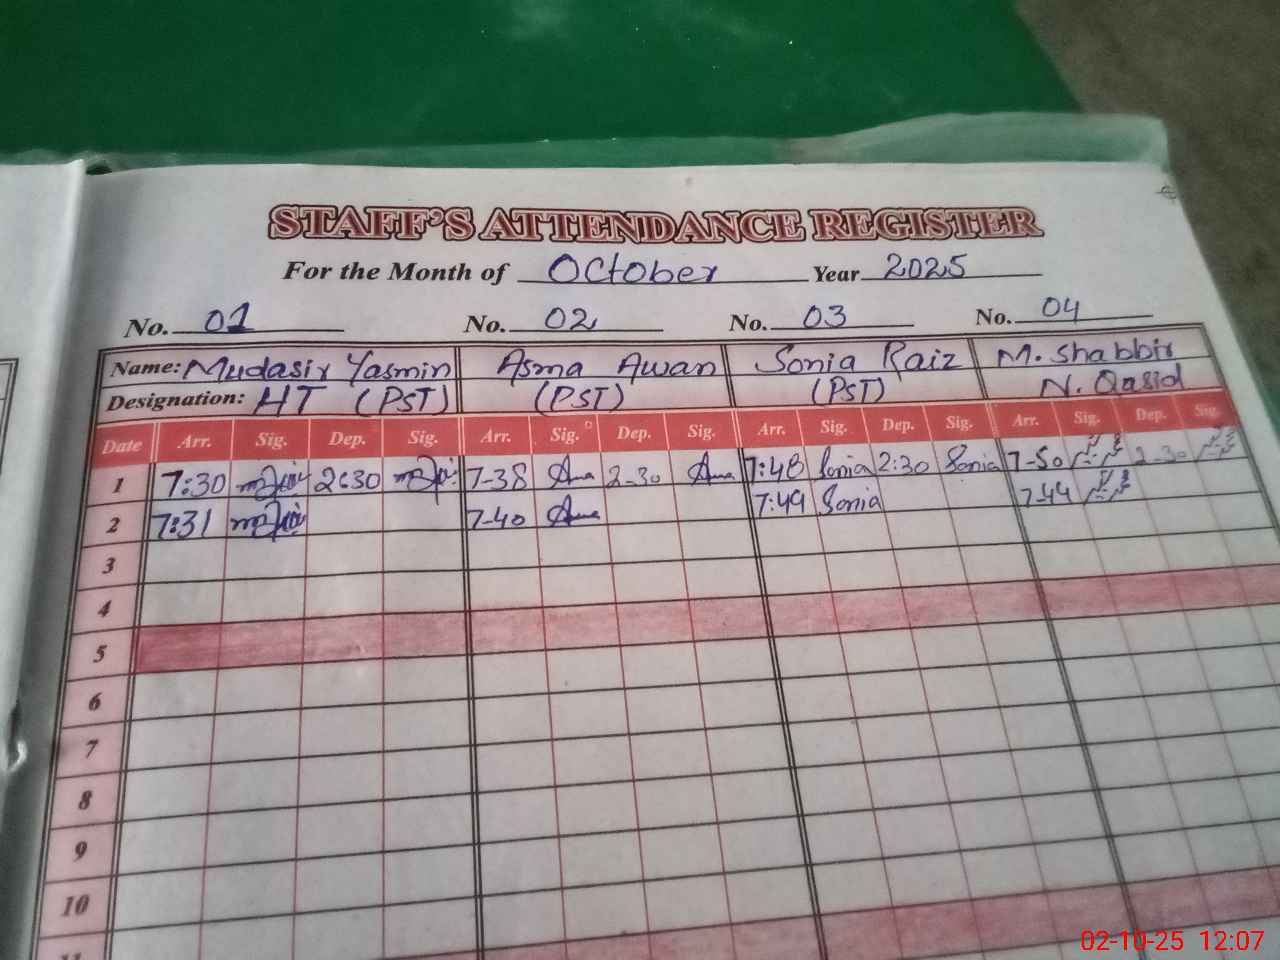 STAFF'S ATTENDANCE REGISTER
For the Month of October Year 2025
No. 01 No. 02 No. 03 No. 04
Name: Mudasir Yasmin Asma Awan Sonia Raiz M. Shabbir
Designation: HT (PST) (PST) (PST) N. Qasid
Date Arr. Sig. Dep. Sig. Arr. Sig. Dep. Sig. Arr. Sig. Dep. Sig. Arr. Sig. Dep. Sig.
1 7:30 2:30 7-38 2-30 7:48 Sonia 2:30 Sonia 7-50 2-30
2 7:31 7-40 7:49 Sonia 7-44
3
4
5
6
7
8
9
10
11
02-10-25 12:07